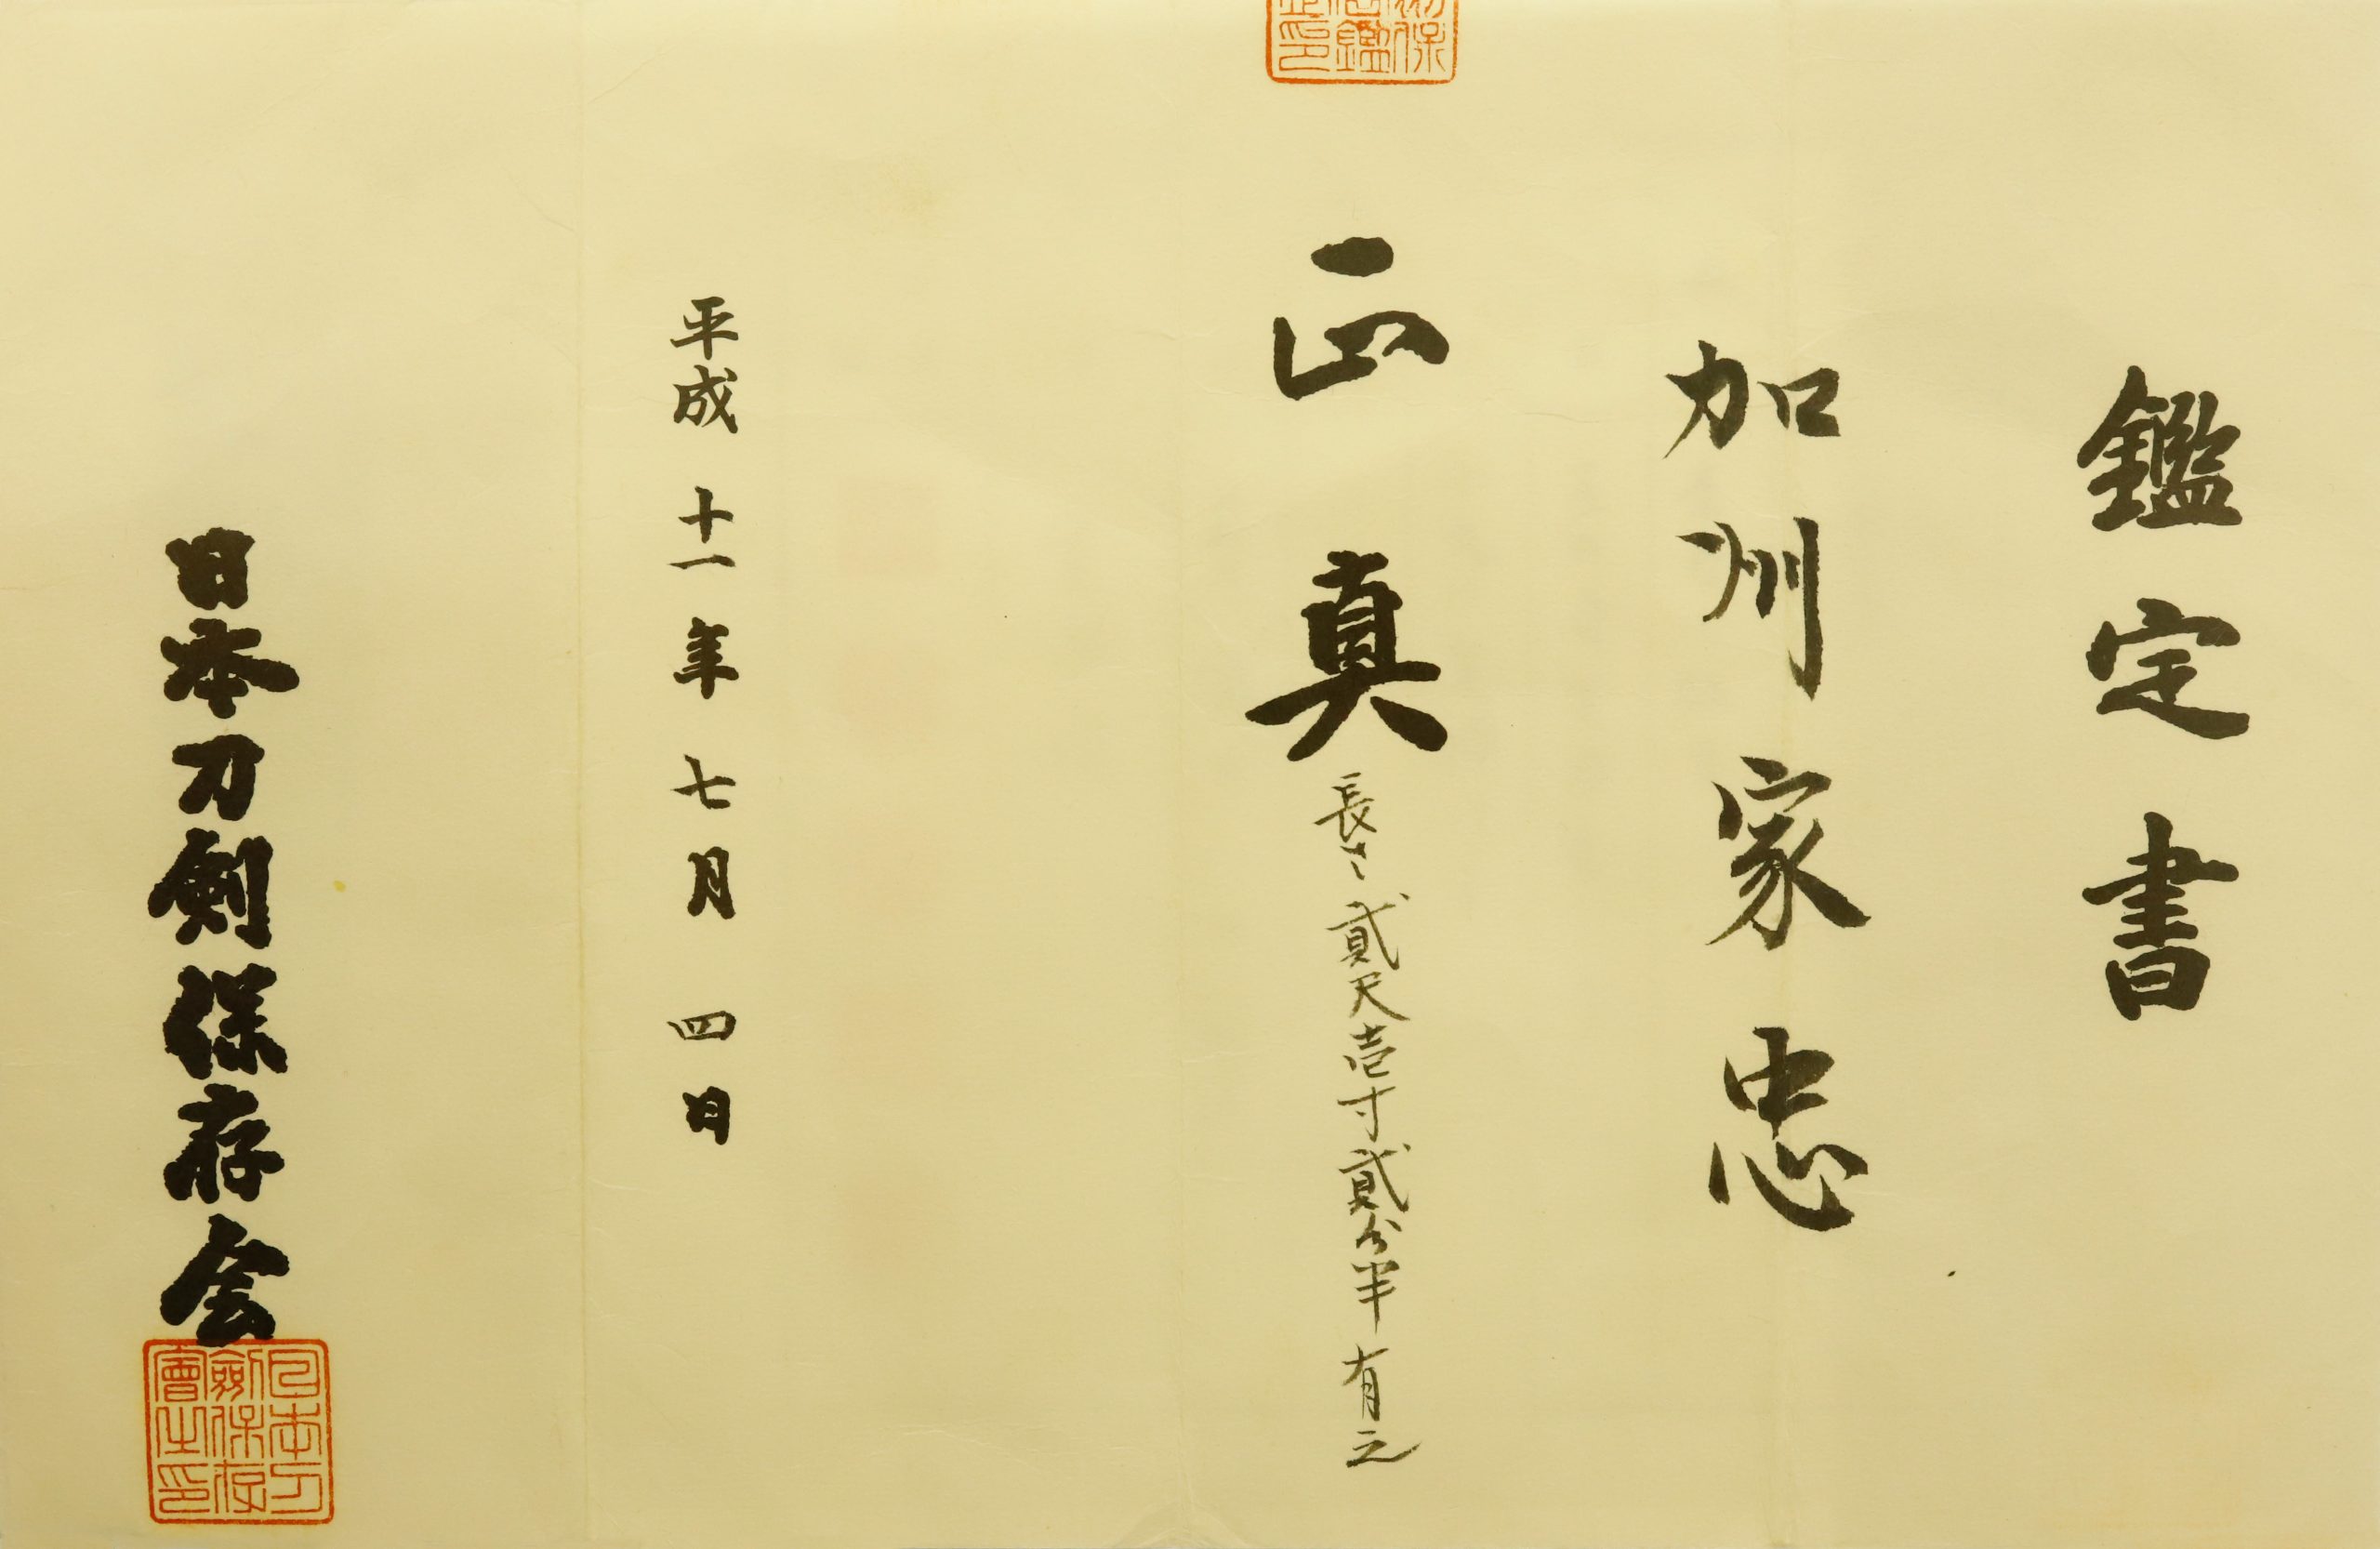 鑑定書
加州家忠
正真
長さ貳尺壱寸貳分半有之
平成十一年七月四日
日本刀剣保存会
日本刀
劔保存
會之印